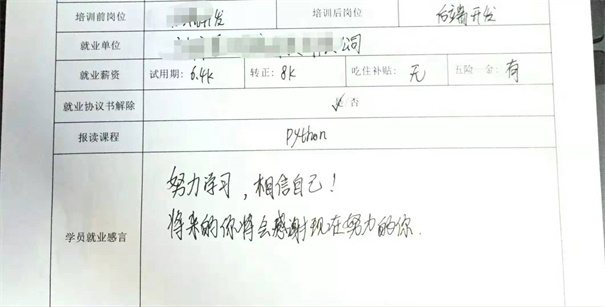 培训前岗位 开发 培训后岗位 后端开发
就业单位 公司
就业薪资 试用期: 6.4k 转正: 8k 吃住补贴: 无 五险一金: 有
就业协议书解除 否
报读课程 python
努力学习,相信自己!
将来的你将会感谢现在努力的你.
学员就业感言